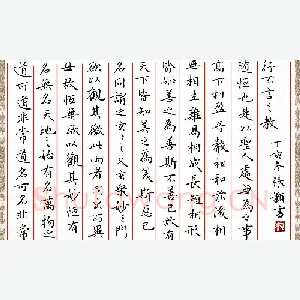 道可道非常道名可名非常
名無名天地之始有名萬物之
母故恒無欲以觀其妙恒有
欲以觀其徼此兩者
名同謂之玄之又玄眾妙之門
天下皆知美之為美斯惡已
皆知善之為善斯不善已故有
無相生難易相成長短相形
高下相盈音聲相和前後相
隨恒也是以聖人處無為之事
行不言之教
丁亥冬